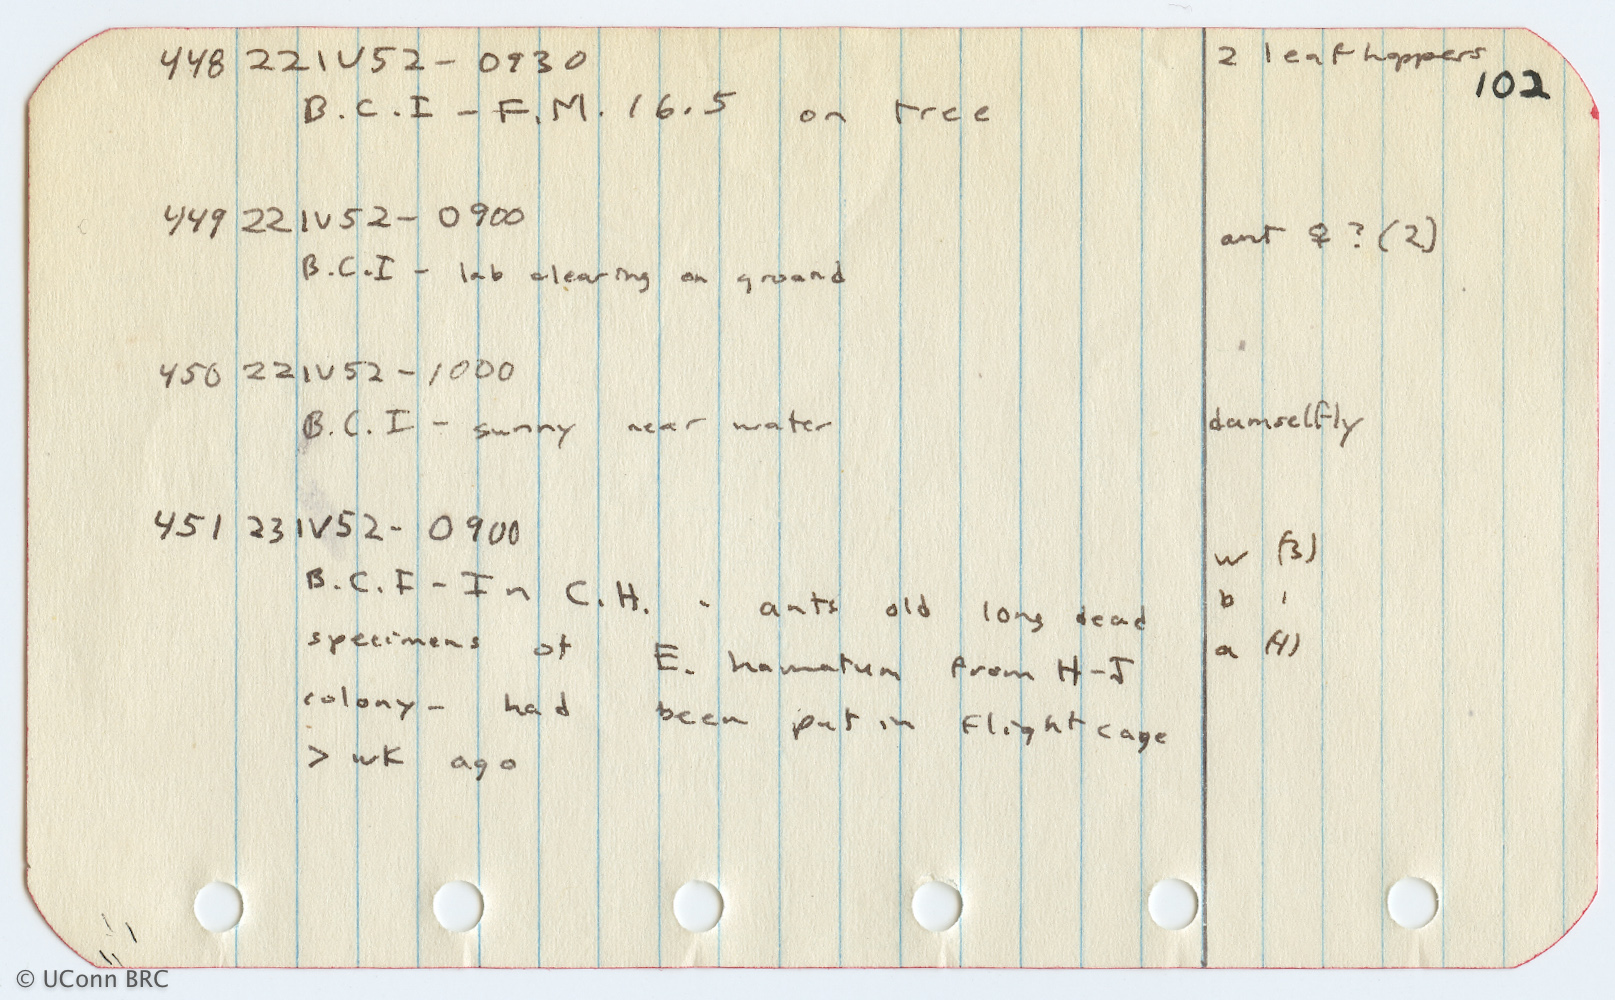 448 22IV52- 0930 2 leafhoppers
102
B.C.I - F.M. 16.5 on tree
449 22IV52- 0900
ant ♀ ? (2)
B.C.I - lab clearing on ground
450 22IV52-1000
B.C.I - sunny near water damselfly
451 23IV52- 0900
w (3)
B.C.I - In C.H. - ants old long dead
b 1
specimens of E. hamatum from H-J
a (4)
colony- had been put in flight cage
> wk ago
© UConn BRC